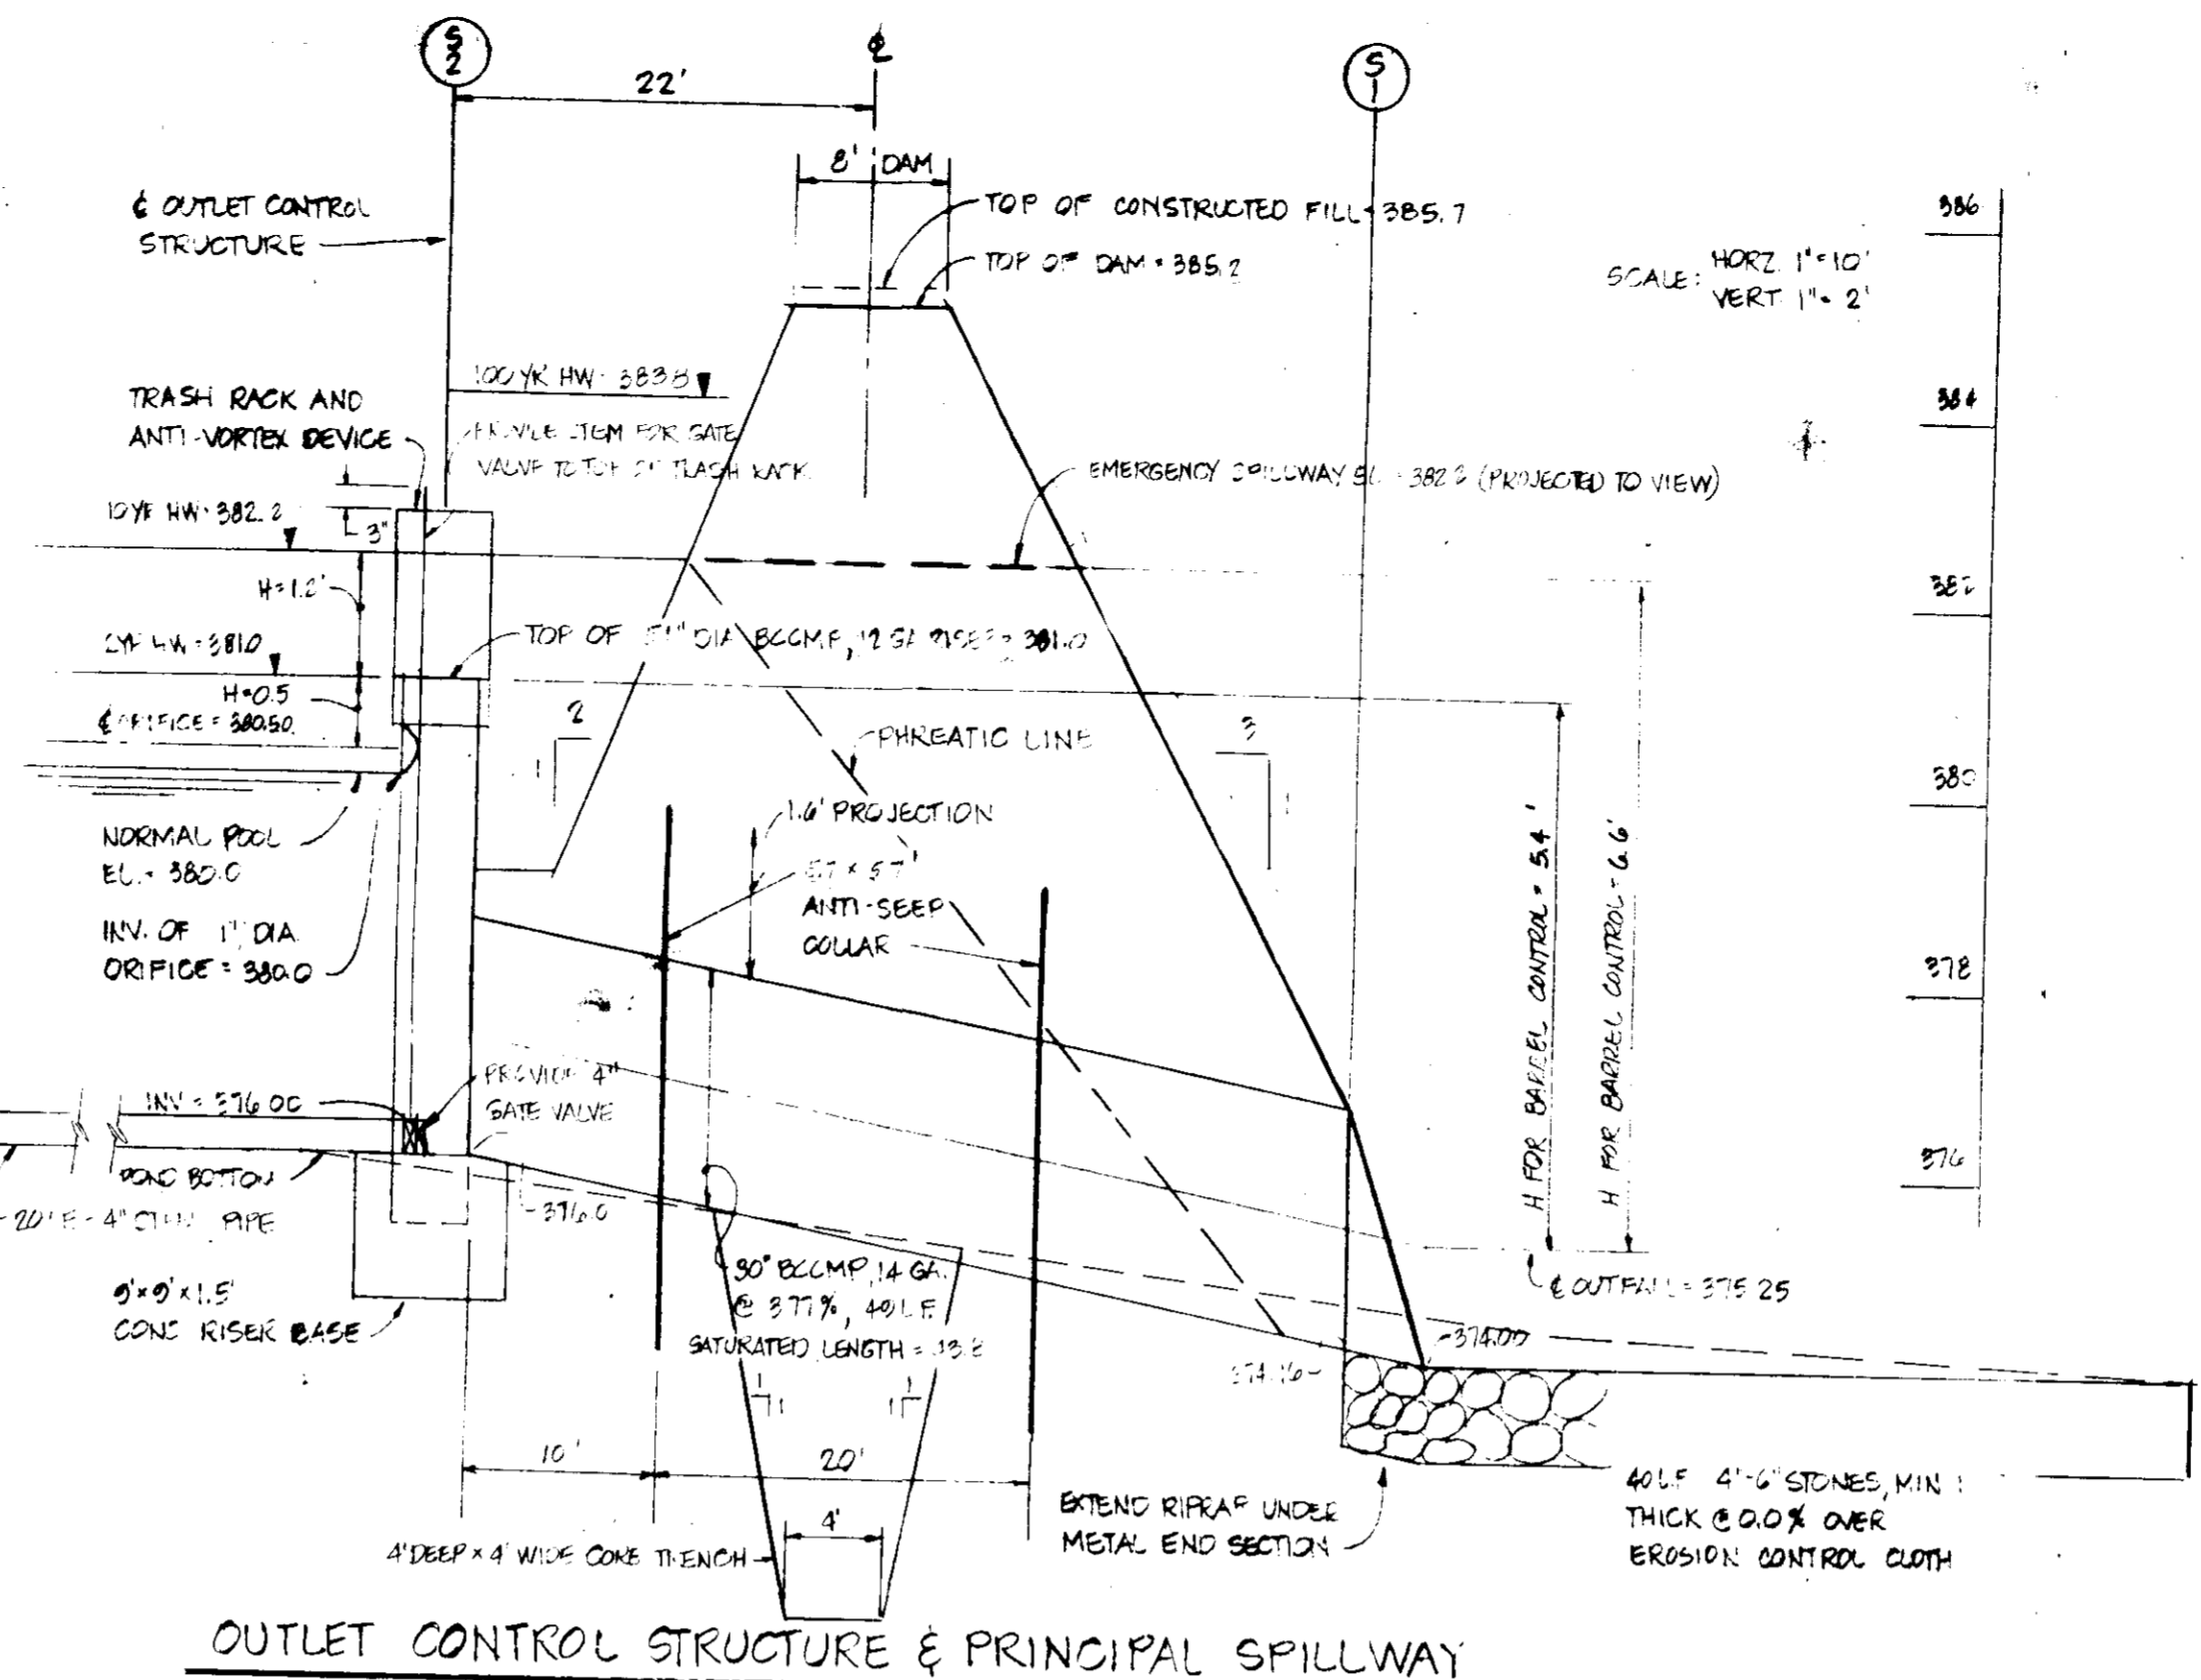 S
2
℄
S
1
22'
8' DAM
℄ OUTLET CONTROL
STRUCTURE
TOP OF CONSTRUCTED FILL = 385.7
TOP OF DAM = 385.2
SCALE: HORZ. 1" = 10'
VERT. 1" = 2'
386
384
382
380
378
376
100 YR HW = 383.8
TRASH RACK AND
ANTI-VORTEX DEVICE
PROVIDE STEM FOR GATE
VALVE TO TOP OF TRASH RACK
EMERGENCY SPILLWAY EL. = 382.2 (PROJECTED TO VIEW)
10 YR HW = 382.2
3"
H = 1.2'
2 YR HW = 381.0
TOP OF DIA BCCMP, 12 GA RISER = 381.0
H = 0.5
℄ ORIFICE = 380.50
2
1
3
1
PHREATIC LINE
NORMAL POOL
EL. = 380.0
INV. OF 1" DIA.
ORIFICE = 380.0
1.6' PROJECTION
5.7 x 5.7'
ANTI-SEEP
COLLAR
H FOR BARREL CONTROL = 5.4'
H FOR BARREL CONTROL = 6.6'
INV = 376.00
PROVIDE 4"
GATE VALVE
POND BOTTOM
376.0
20' 4" PIPE
9' x 9' x 1.5'
CONC RISER BASE
30" BCCMP, 14 GA.
@ 3.77%, 49 L.F.
SATURATED LENGTH =
℄ OUTFALL = 375.25
374.00
374.16
1
1
1
1
10'
20'
4'
4' DEEP x 4' WIDE CORE TRENCH
EXTEND RIPRAP UNDER
METAL END SECTION
40 L.F. 4"-6" STONES, MIN 1
THICK @ 0.0% OVER
EROSION CONTROL CLOTH
OUTLET CONTROL STRUCTURE & PRINCIPAL SPILLWAY